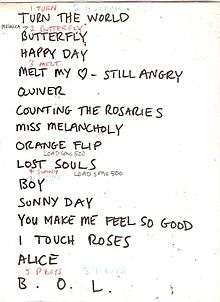 1 TURN
TURN THE WORLD
2 BUTTERFLY
BUTTERFLY
HAPPY DAY
3 MELT
MELT MY ♡ - STILL ANGRY
QUIVER
COUNTING THE ROSARIES
MISS MELANCHOLY
ORANGE FLIP
LOST SOULS
4 SUNNY
BOY
SUNNY DAY
YOU MAKE ME FEEL SO GOOD
I TOUCH ROSES
ALICE
B. O. L.